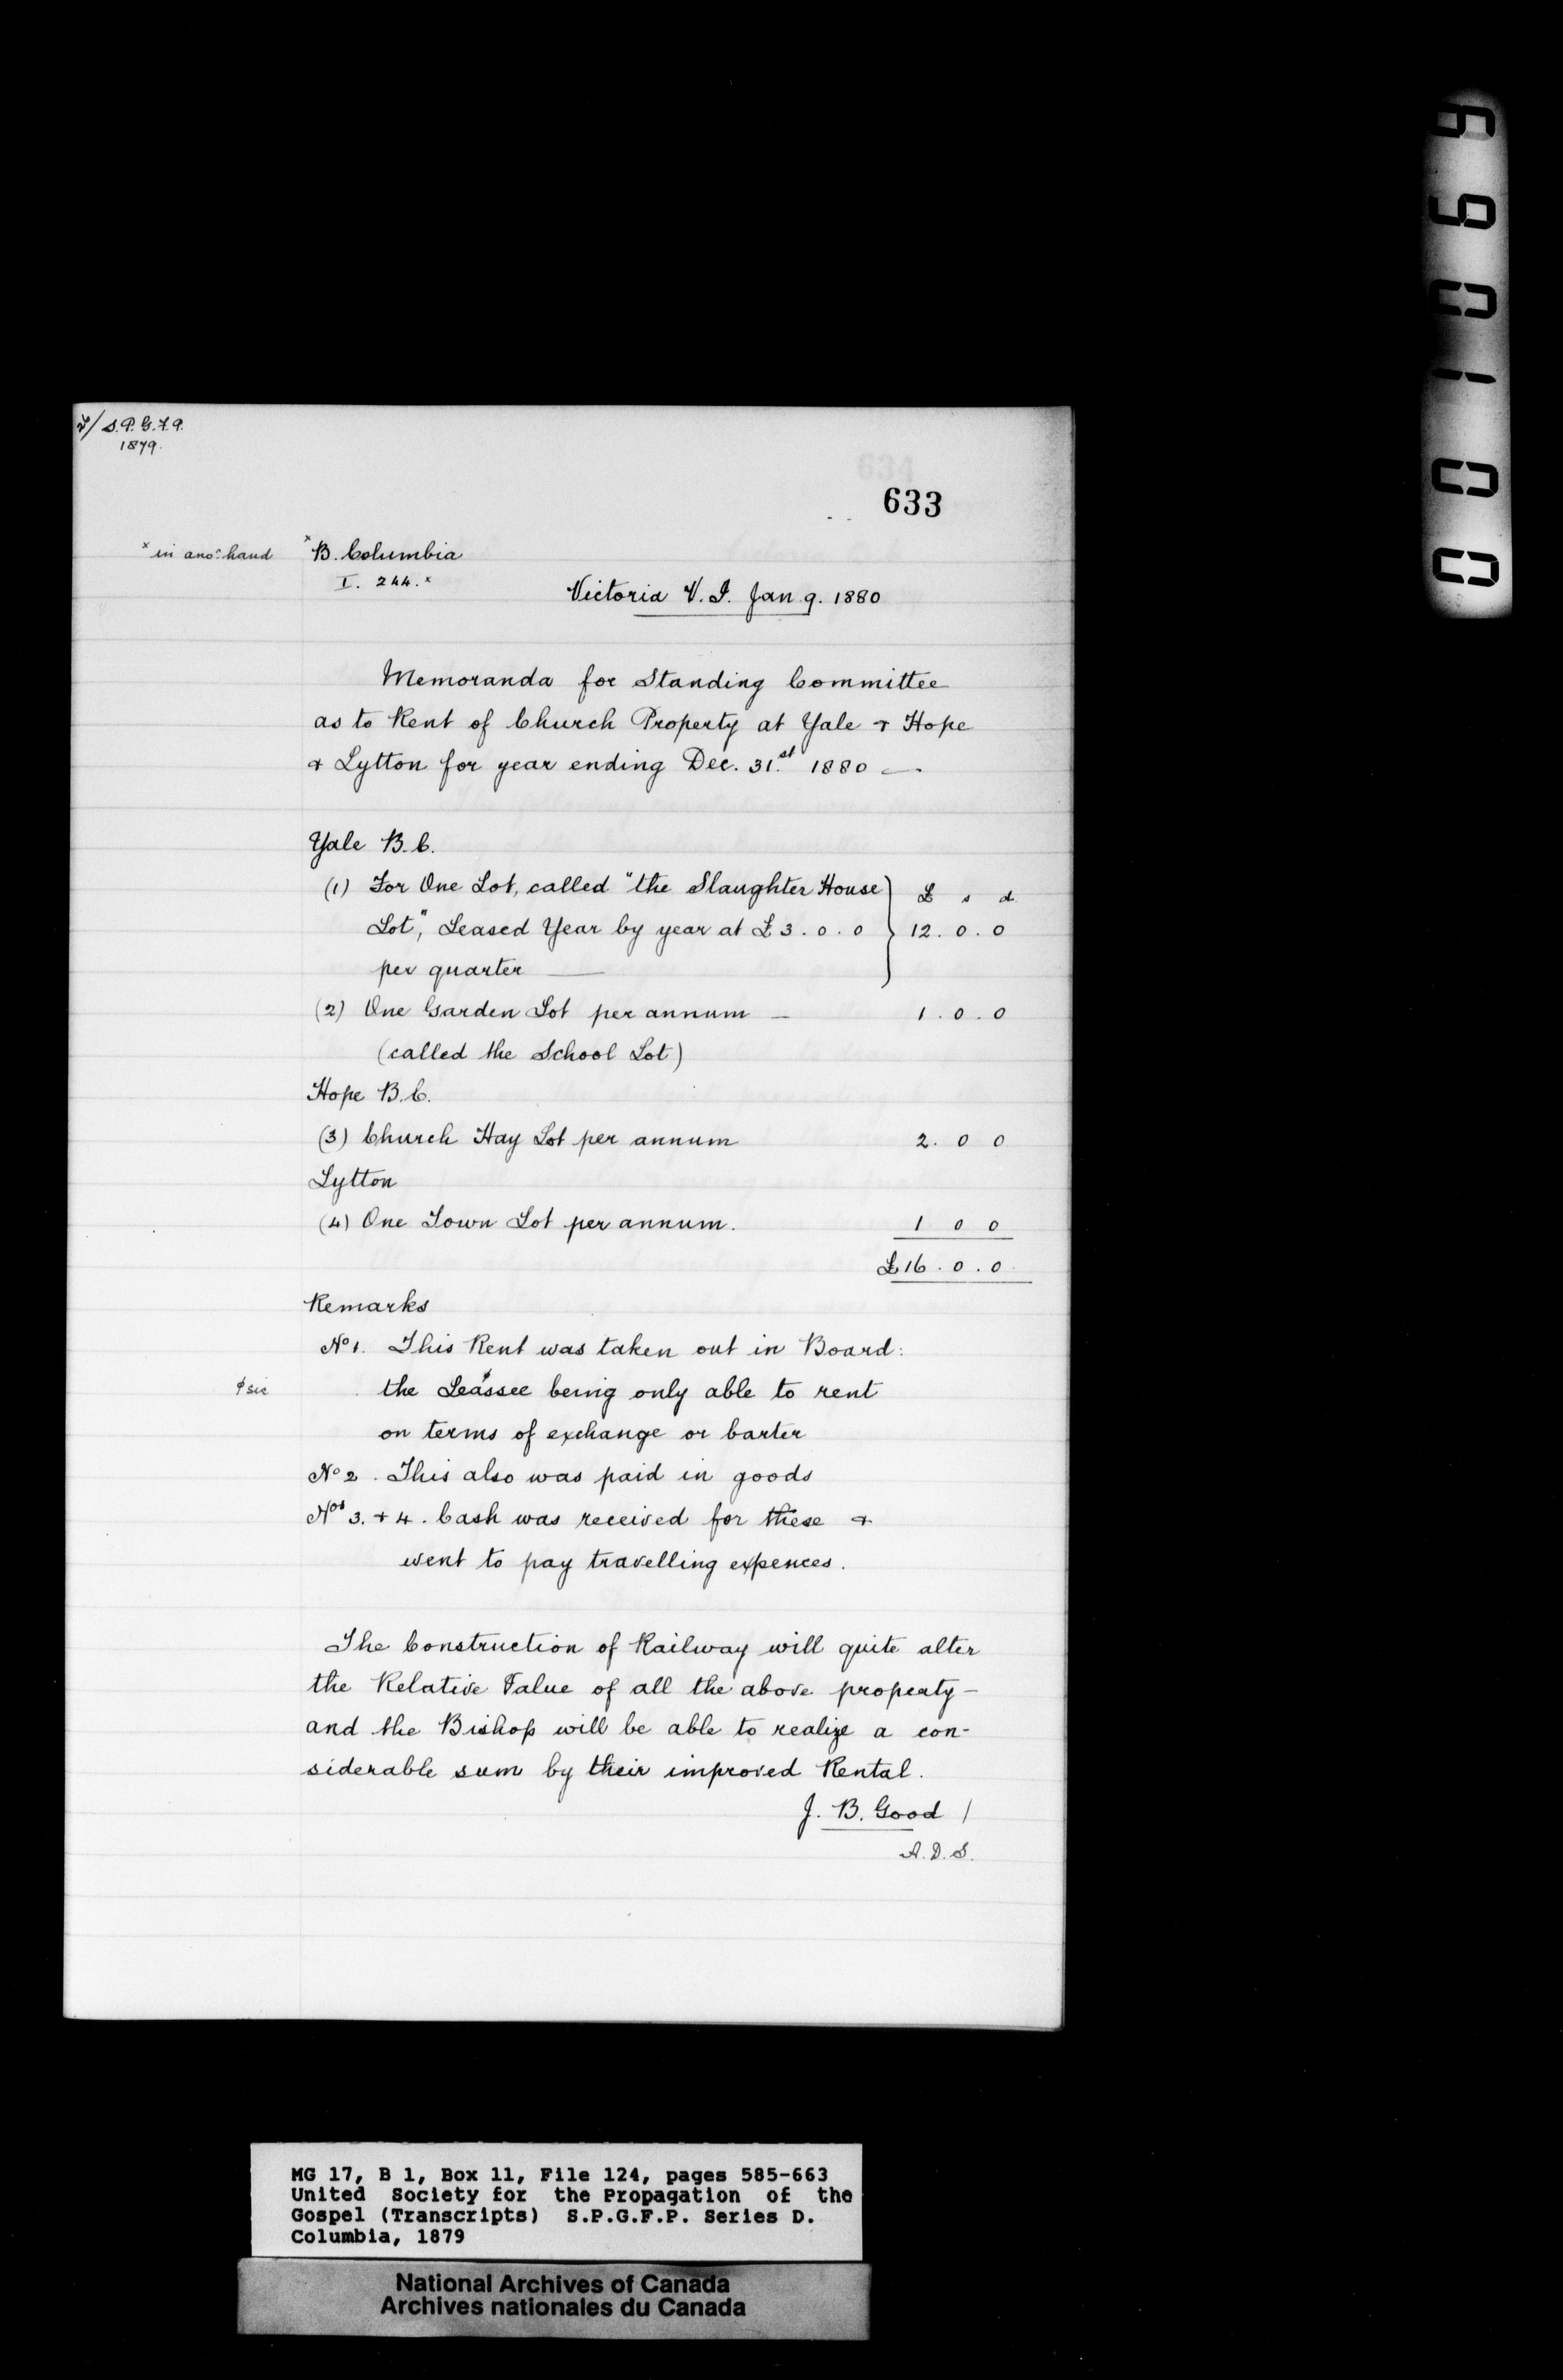 S.P.G.F.P.
1879.
633
x in ano: hand
x B. Columbia
I. 244. x
Victoria V.I. Jan 9. 1880
Memoranda for Standing Committee
as to Rent of Church Property at Yale + Hope
+ Lytton for year ending Dec. 31.st 1880 —
Yale B.C.
(1) For One Lot, called "the Slaughter House £ s d.
Lot", Leased Year by year at £3.0.0 12.0.0
per quarter —
(2) One Garden Lot per annum — 1.0.0
(called the School Lot)
Hope B.C.
(3) Church Hay Lot per annum 2. 0 0
Lytton
(4) One Town Lot per annum. 1 0 0
£16.0.0.
Remarks
No 1. This Rent was taken out in Board:
ϕ sic the Leaϕssee being only able to rent
on terms of exchange or barter
No 2. This also was paid in goods
Nos 3. + 4. Cash was received for these +
went to pay travelling expences.
The Construction of Railway will quite alter
the Relative Value of all the above property –
and the Bishop will be able to realize a con-
siderable sum by their improved Rental.
J. B. Good /
A.D.S.
MG 17, B 1, Box 11, File 124, pages 585-663
United Society for the Propagation of the
Gospel (Transcripts) S.P.G.F.P. Series D.
Columbia, 1879
National Archives of Canada
Archives nationales du Canada